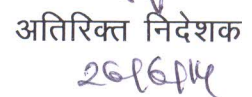 अतिरिक्त निदेशक
26/6/14